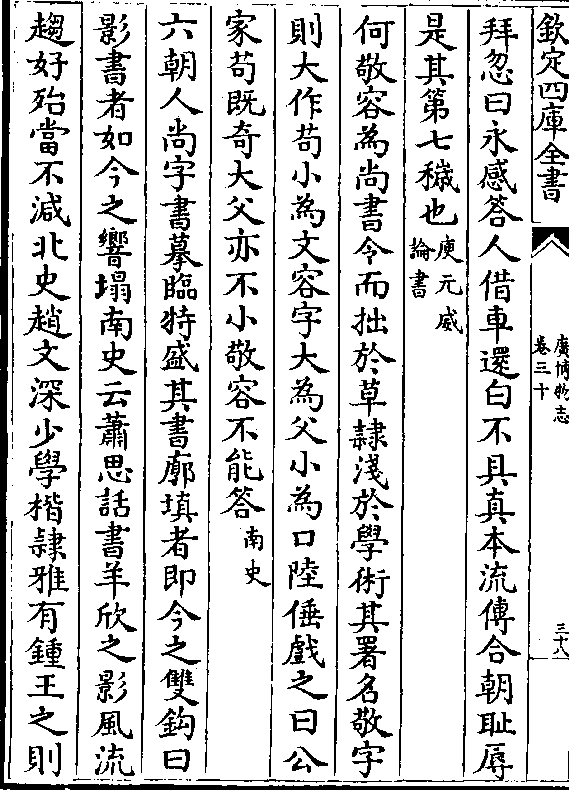 欽定四庫全書
廣博物志
卷三十
三十八
拜忽曰永感答人借車還白不具真本流傳合朝耻辱
是其第七穢也庾元威論書
何敬容為尚書令而拙於草隸淺於學術其署名敬字
則大作苟小為文容字大為父小為口陸倕戲之曰公
家苟既奇大父亦不小敬容不能答南史
六朝人尚字書摹臨特盛其書廓填者即今之雙鈎曰
影書者如今之響搨南史云蕭思話書羊欣之影風流
趨好殆當不減北史趙文深少學楷隸雅有鍾王之則